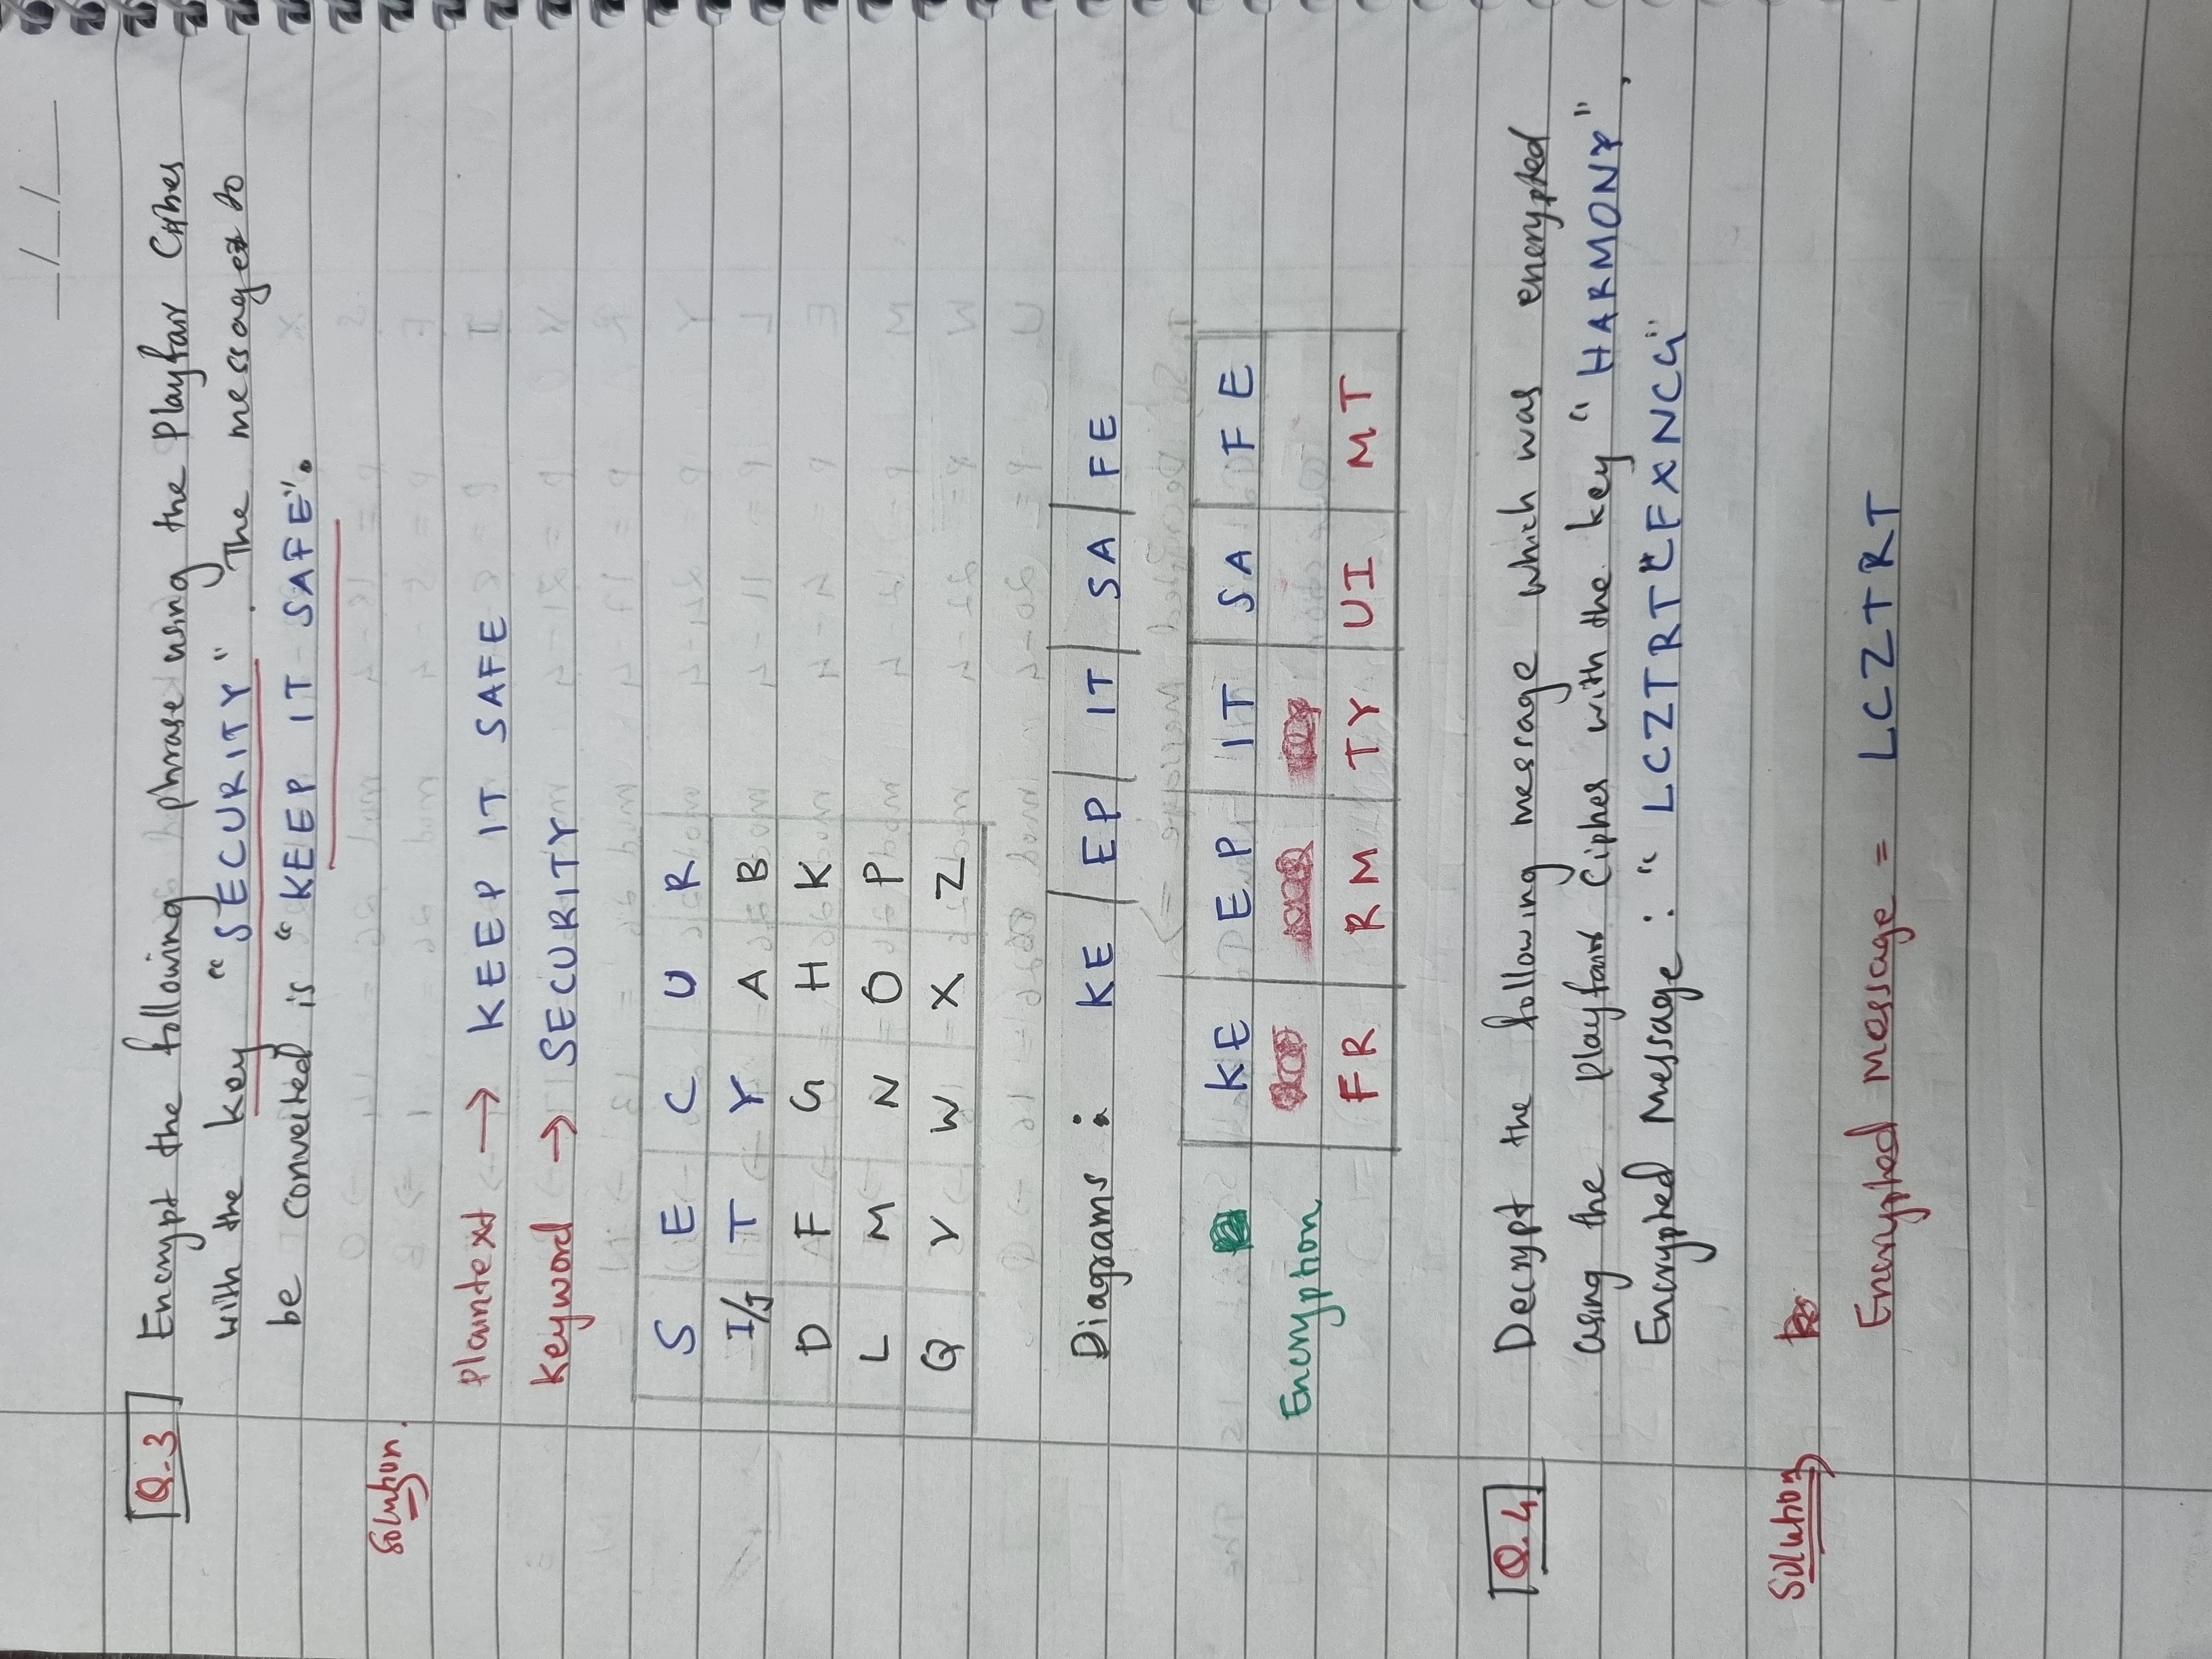 __/__/____
Q.3 Encrypt the following phrase using the Playfair Cipher
with the key "SECURITY". The message to
be converted is "KEEP IT SAFE".
Solution.
Plaintext → KEEP IT SAFE
Keyword → SECURITY
S E C U R
I/J T Y A B
D F G H K
L M N O P
Q V W X Z
Diagrams : KE / EP / IT / SA / FE
KE EP IT SA FE
Encryption
FR RM TY UI MT
Q.4 Decrypt the following message which was encrypted
using the Playfair Cipher with the key "HARMONY",
Encrypted Message : "LCZTRTCFXNCG"
Solution
Encrypted Message = LCZTRT